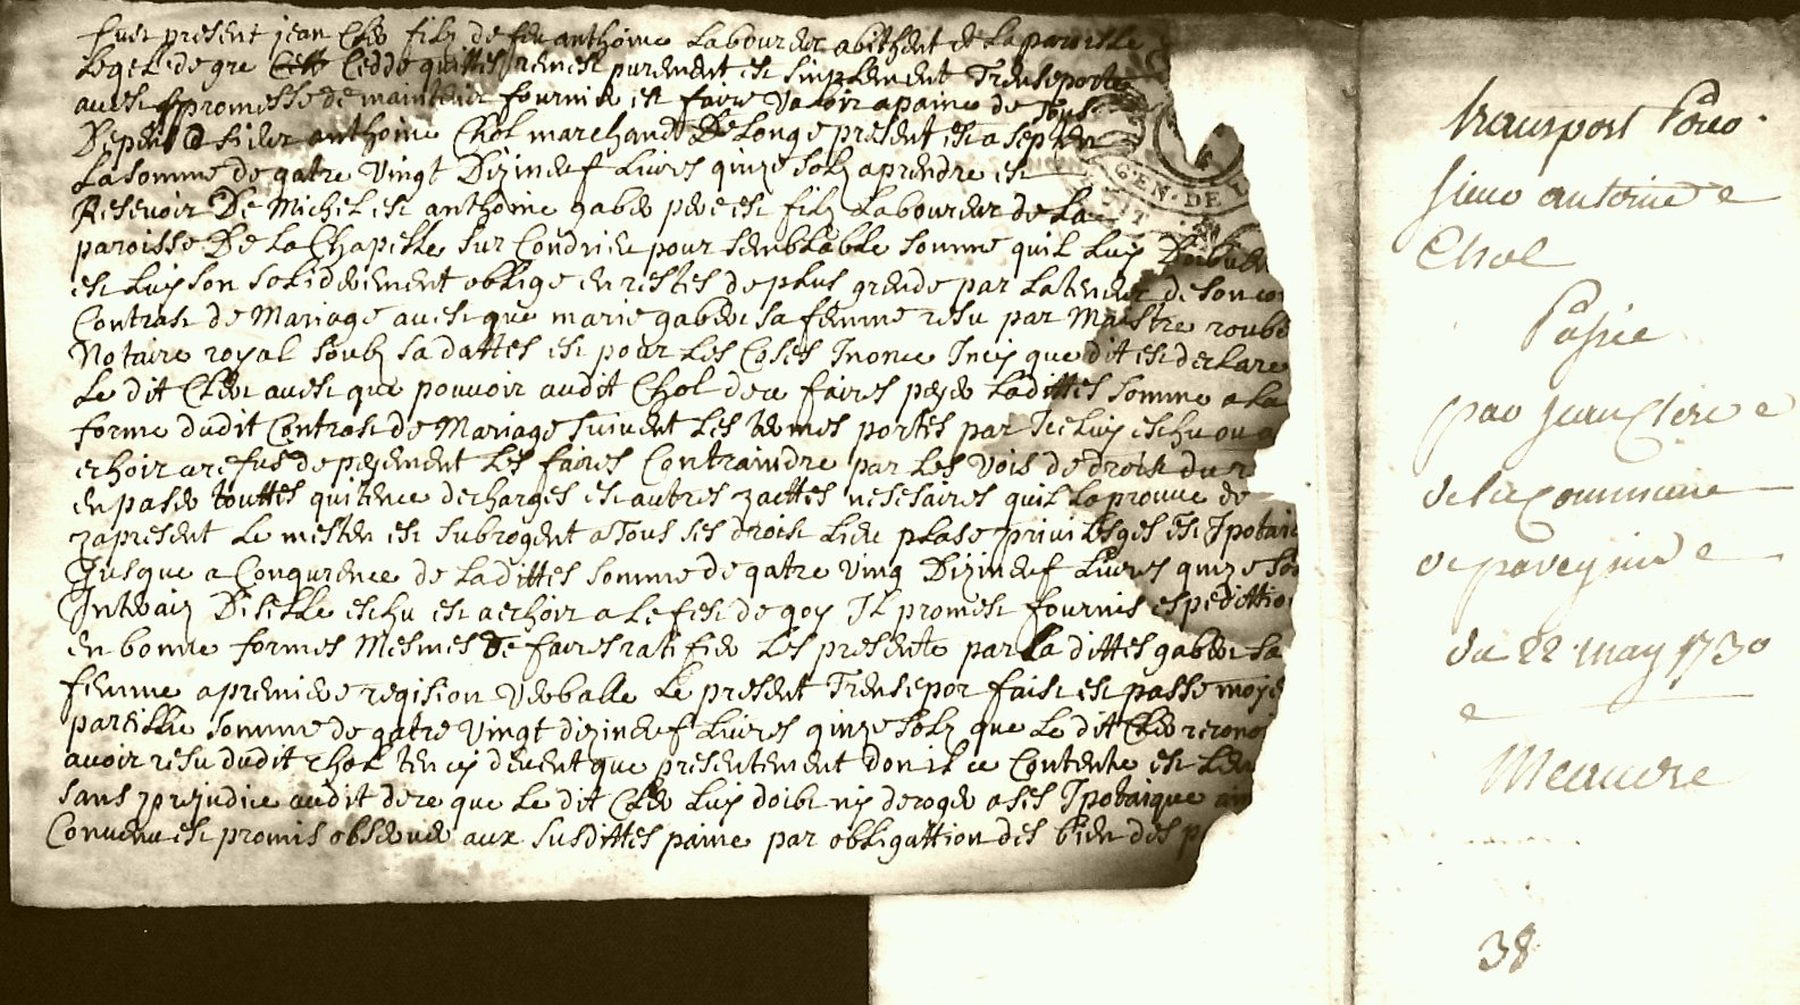 fust present jean Cler filz de feu anthoine Laboureur abithent de La paroisse
Lequel de gre Cedde quittes remest purement est simplement Trensporte
avest promesse de maintenir fournir et faire valoir apaine de tous
Depens a sieur anthoine Chol marchand De Longe present est aseptan
La somme de qatre vingt Dizineuf Livres quinze solz aprendre est
Resevoir De Michel est anthoine gaber pere est filz Laboureur de La
paroisse De La Chapelle sur Condrieu pour semblable somme quil Luy Doibve
est Luy son soliderement obblige en restes de plus grende par La teneur de son
Contrast de Mariage avest que marie gaber sa femme resu par Maistre
Notaire royal soubz sa dattes est pour Les Coses Inonce Incy que dit est declare
Le dit Cler avest que pouvoir audit Chol den faires peyer La dittes somme a La
forme dudit Contrast de Mariage suivent Les termes portes par Iceluy eschu ou a
echoir a refus de peyement Les faires Contraindre par Les vois de droist
en paser touttes quitence decharges est autres zacttes nesesaires quil La prouve de
zapresent Le mesten est subrogent a Tous ses droist Lieu plase privilesges est
Jusque a Conqurence de La dittes somme de qatre ving Dizineuf Livres quinze
Interaiz Diselle eschu est aechoir a Lefest de qoy Il promest fournis
en bonne formes Mesmes de faires ratifier Les presente par La dittes gaber sa
femme a premiere regision verballe Le present Trensepor faist est passe
pareille somme de qatre vingt dizineuf Livres quinze solz que Le dit Cler
avoir resu dudit chol ten cy devent que presentement don il ce Contente est
sans zprejudice audit dere que Le dit Cler Luy doibt ny deroger a ses Ipotaique
Convenu est promis observer aux susdittes paine par obligattion des bien des
GEN. DE L
transport Pour
sieur antoine
Chol
Passée
par jean Clerc
de la commune
de paveysin
du 22 may 1730
38